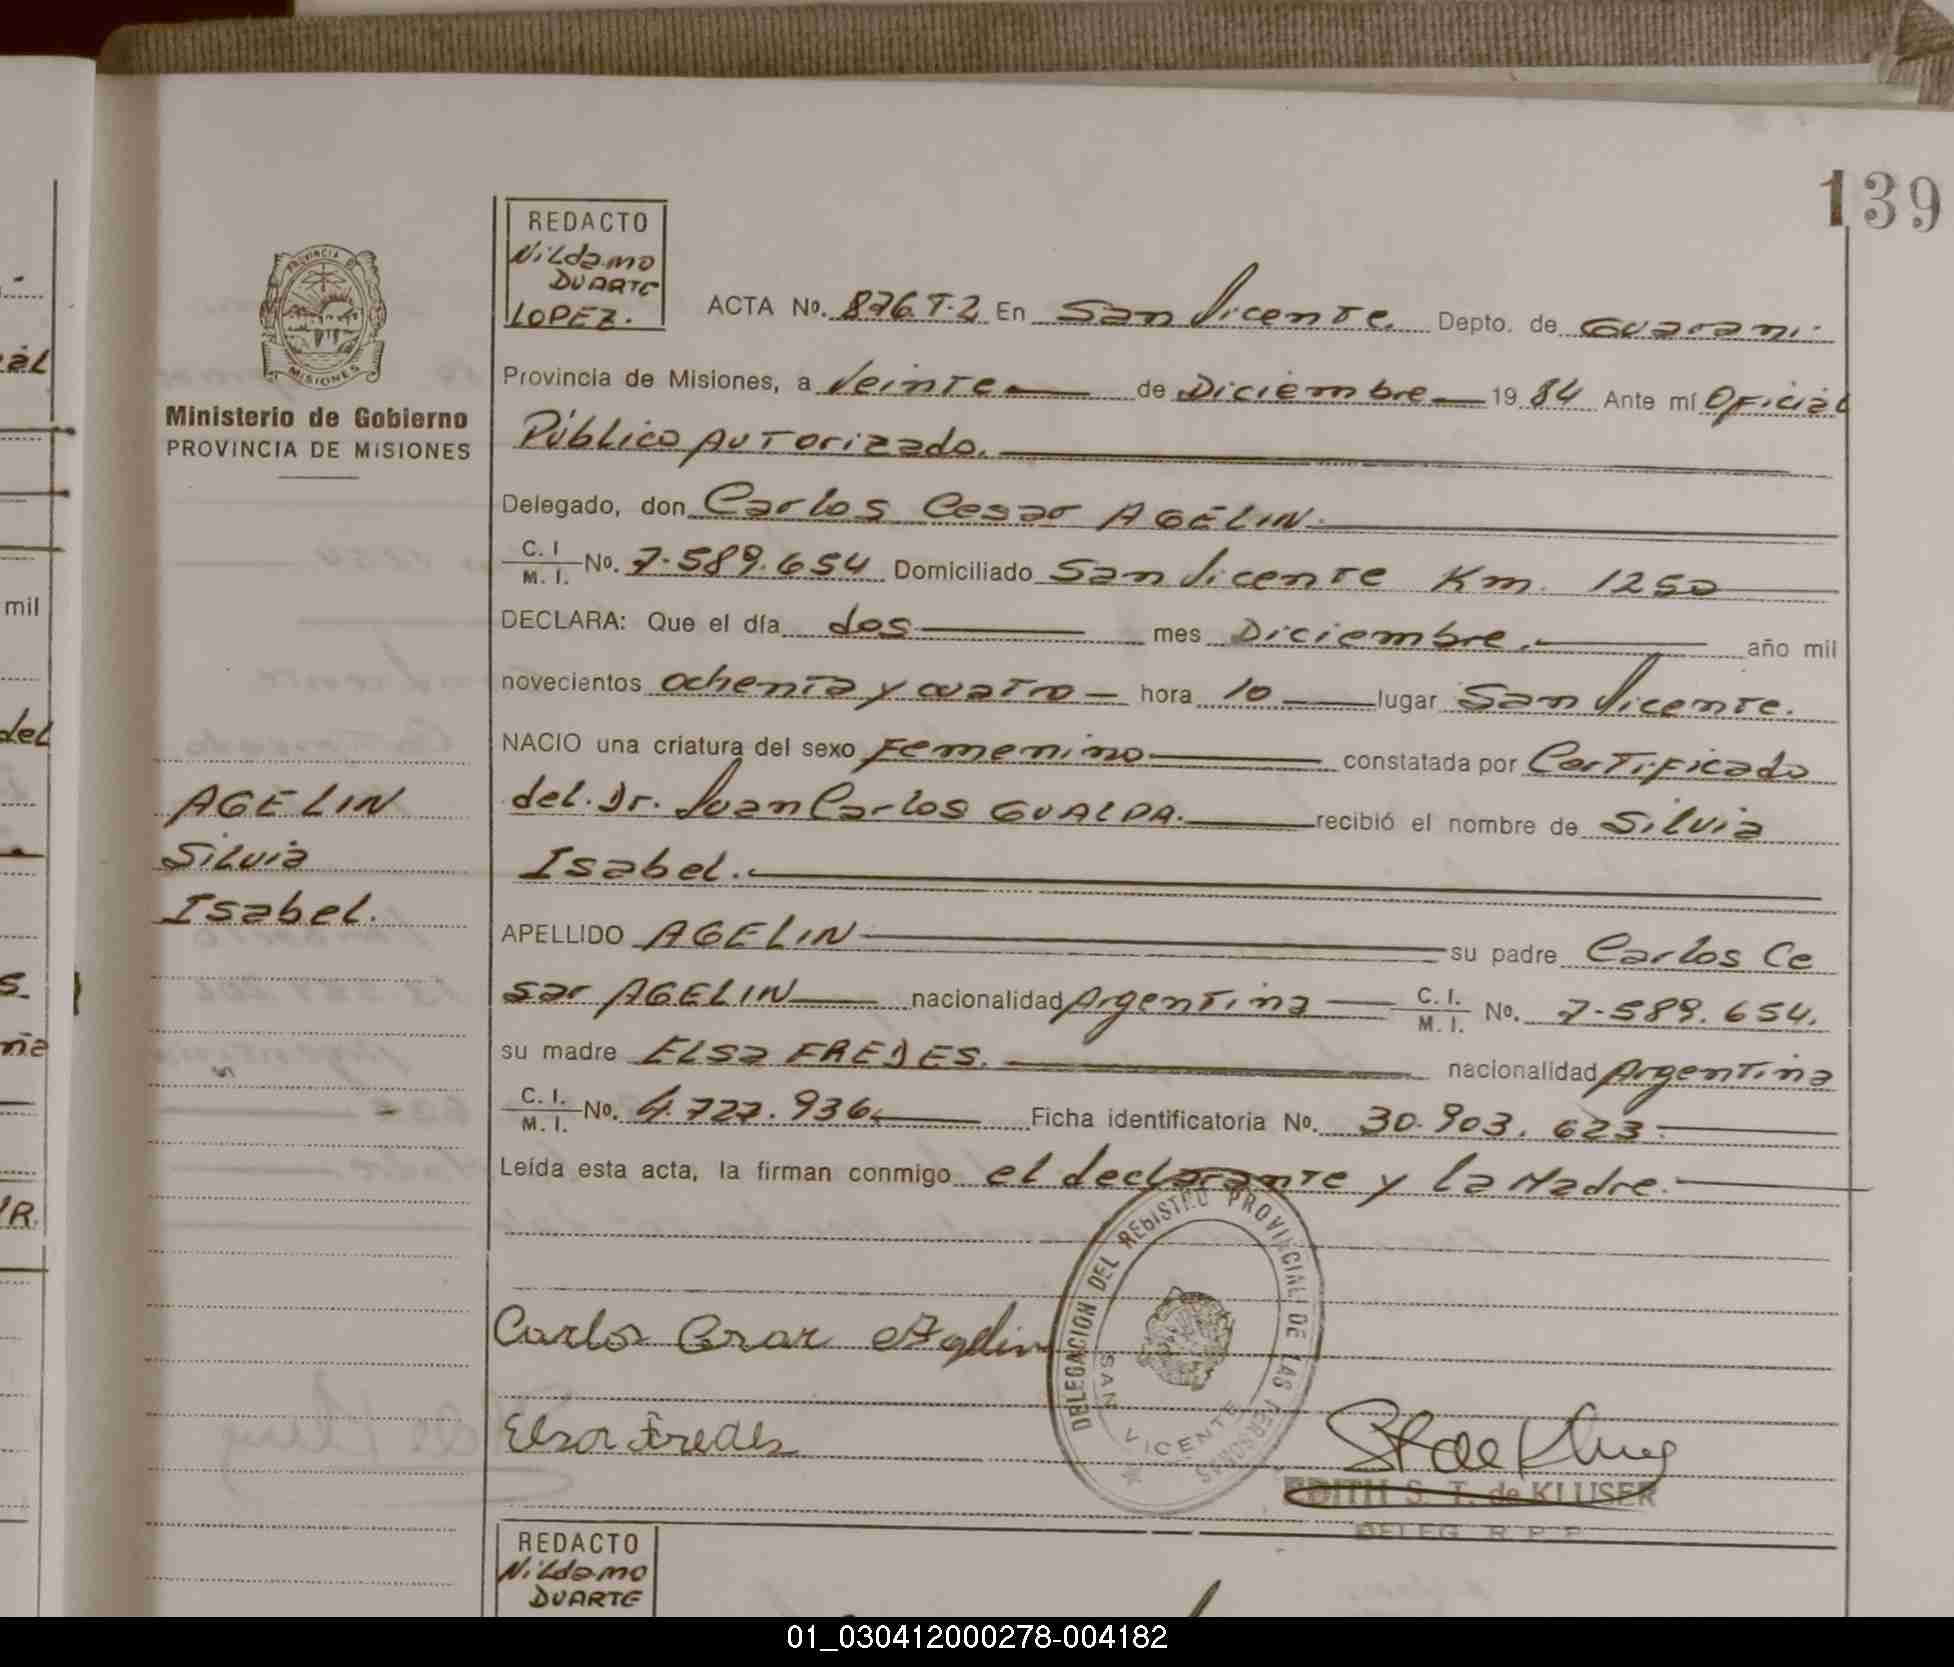 139
REDACTO
Nildamo
DUARTE
LOPEZ.
ACTA Nº. 876.T.2 En San Vicente. Depto. de Guarani.
PROVINCIA DE
MISIONES
Ministerio de Gobierno
PROVINCIA DE MISIONES
Provincia de Misiones, a Veinte de Diciembre 19 84 Ante mí Oficial
Público Autorizado.
Delegado, don Carlos Cesar AGELIN.
C. I / M. I. No. 7.589.654 Domiciliado San Vicente Km. 1250
DECLARA: Que el día dos mes Diciembre. año mil
novecientos ochenta y cuatro hora 10 lugar San Vicente.
NACIO una criatura del sexo Femenino constatada por Certificado
del. Dr. Juan Carlos GUALDA. recibió el nombre de Silvia
Isabel.
AGELIN
Silvia
Isabel.
APELLIDO AGELIN su padre Carlos Ce
sar AGELIN nacionalidad Argentina C. I. / M. I. No. 7.589.654.
su madre Elsa FREDES. nacionalidad Argentina
C. I. / M. I. No. 4.727.936. Ficha identificatoria No. 30.903.623.
Leída esta acta, la firman conmigo el declarante y la Madre.
DELEGACION DEL REGISTRO PROVINCIAL DE LAS PERSONAS
SAN VICENTE
Carlos Cesar Agelin
Elsa Fredes
EDITH S. T. de KLUSER
DELEG. R. P. P.
REDACTO
Nildamo
DUARTE
al
mil
del
s.
ña
R.
01_030412000278-004182